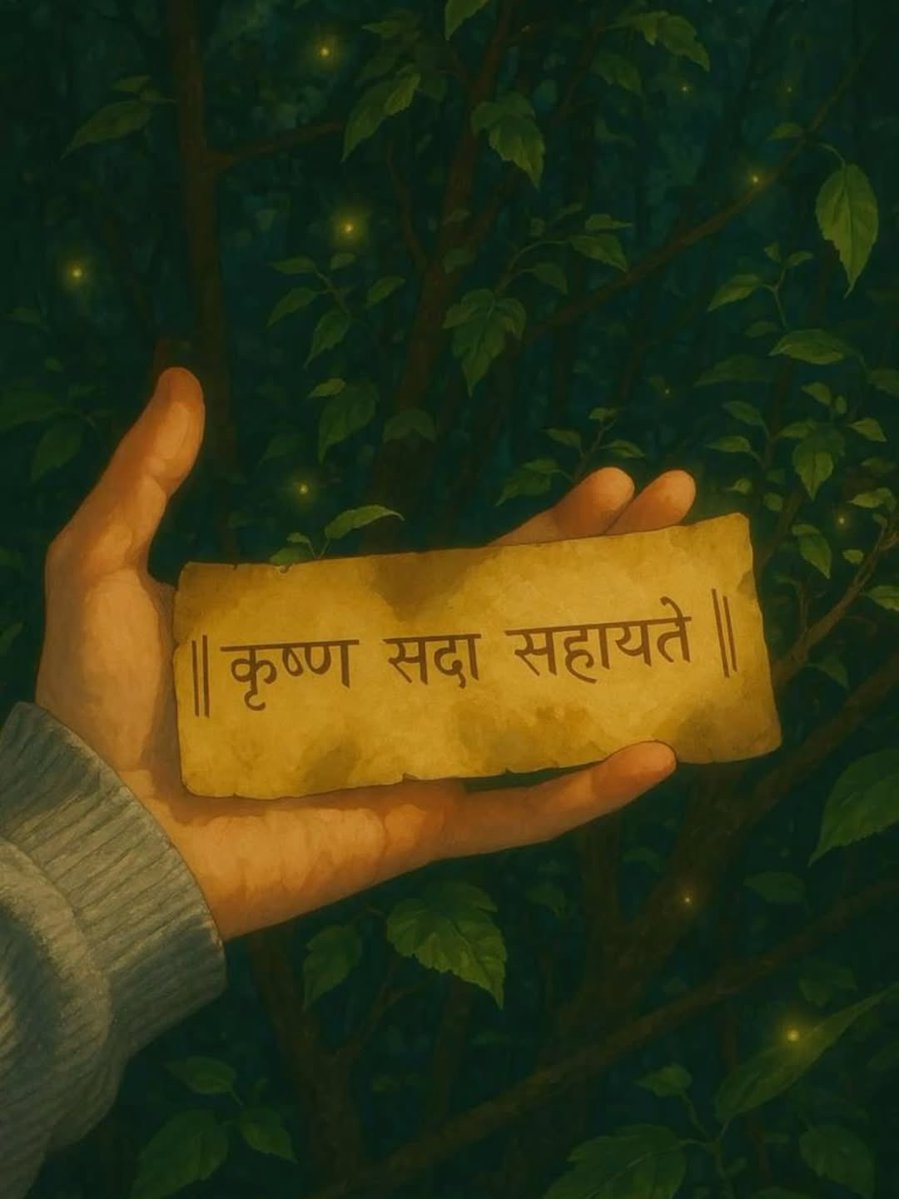 ॥ कृष्ण सदा सहायते ॥